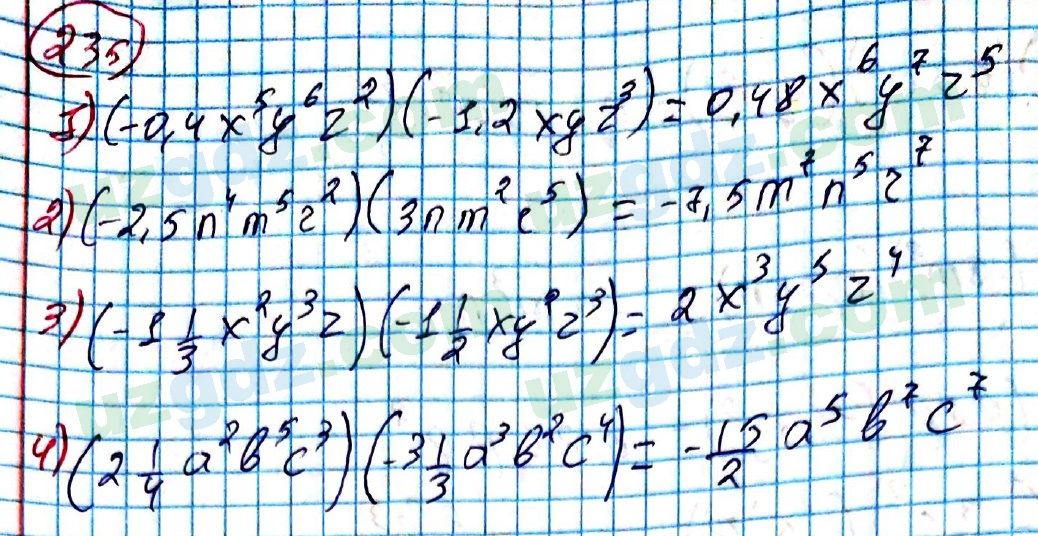 235
1) (-0,4x⁵y⁶z²)(-1,2xyz³) = 0,48x⁶y⁷z⁵
2) (-2,5n⁴m⁵z²)(3nm²c⁵) = -7,5m⁷n⁵z⁷
3) (-1 1/3 x²y³z)(-1 1/2 xy²z³) = 2x³y⁵z⁴
4) (2 1/4 a²b⁵c³)(-3 1/3 a³b²c⁴) = -15/2 a⁵b⁷c⁷
uzgdz.com
uzgdz.com
uzgdz.com
uzgdz.com